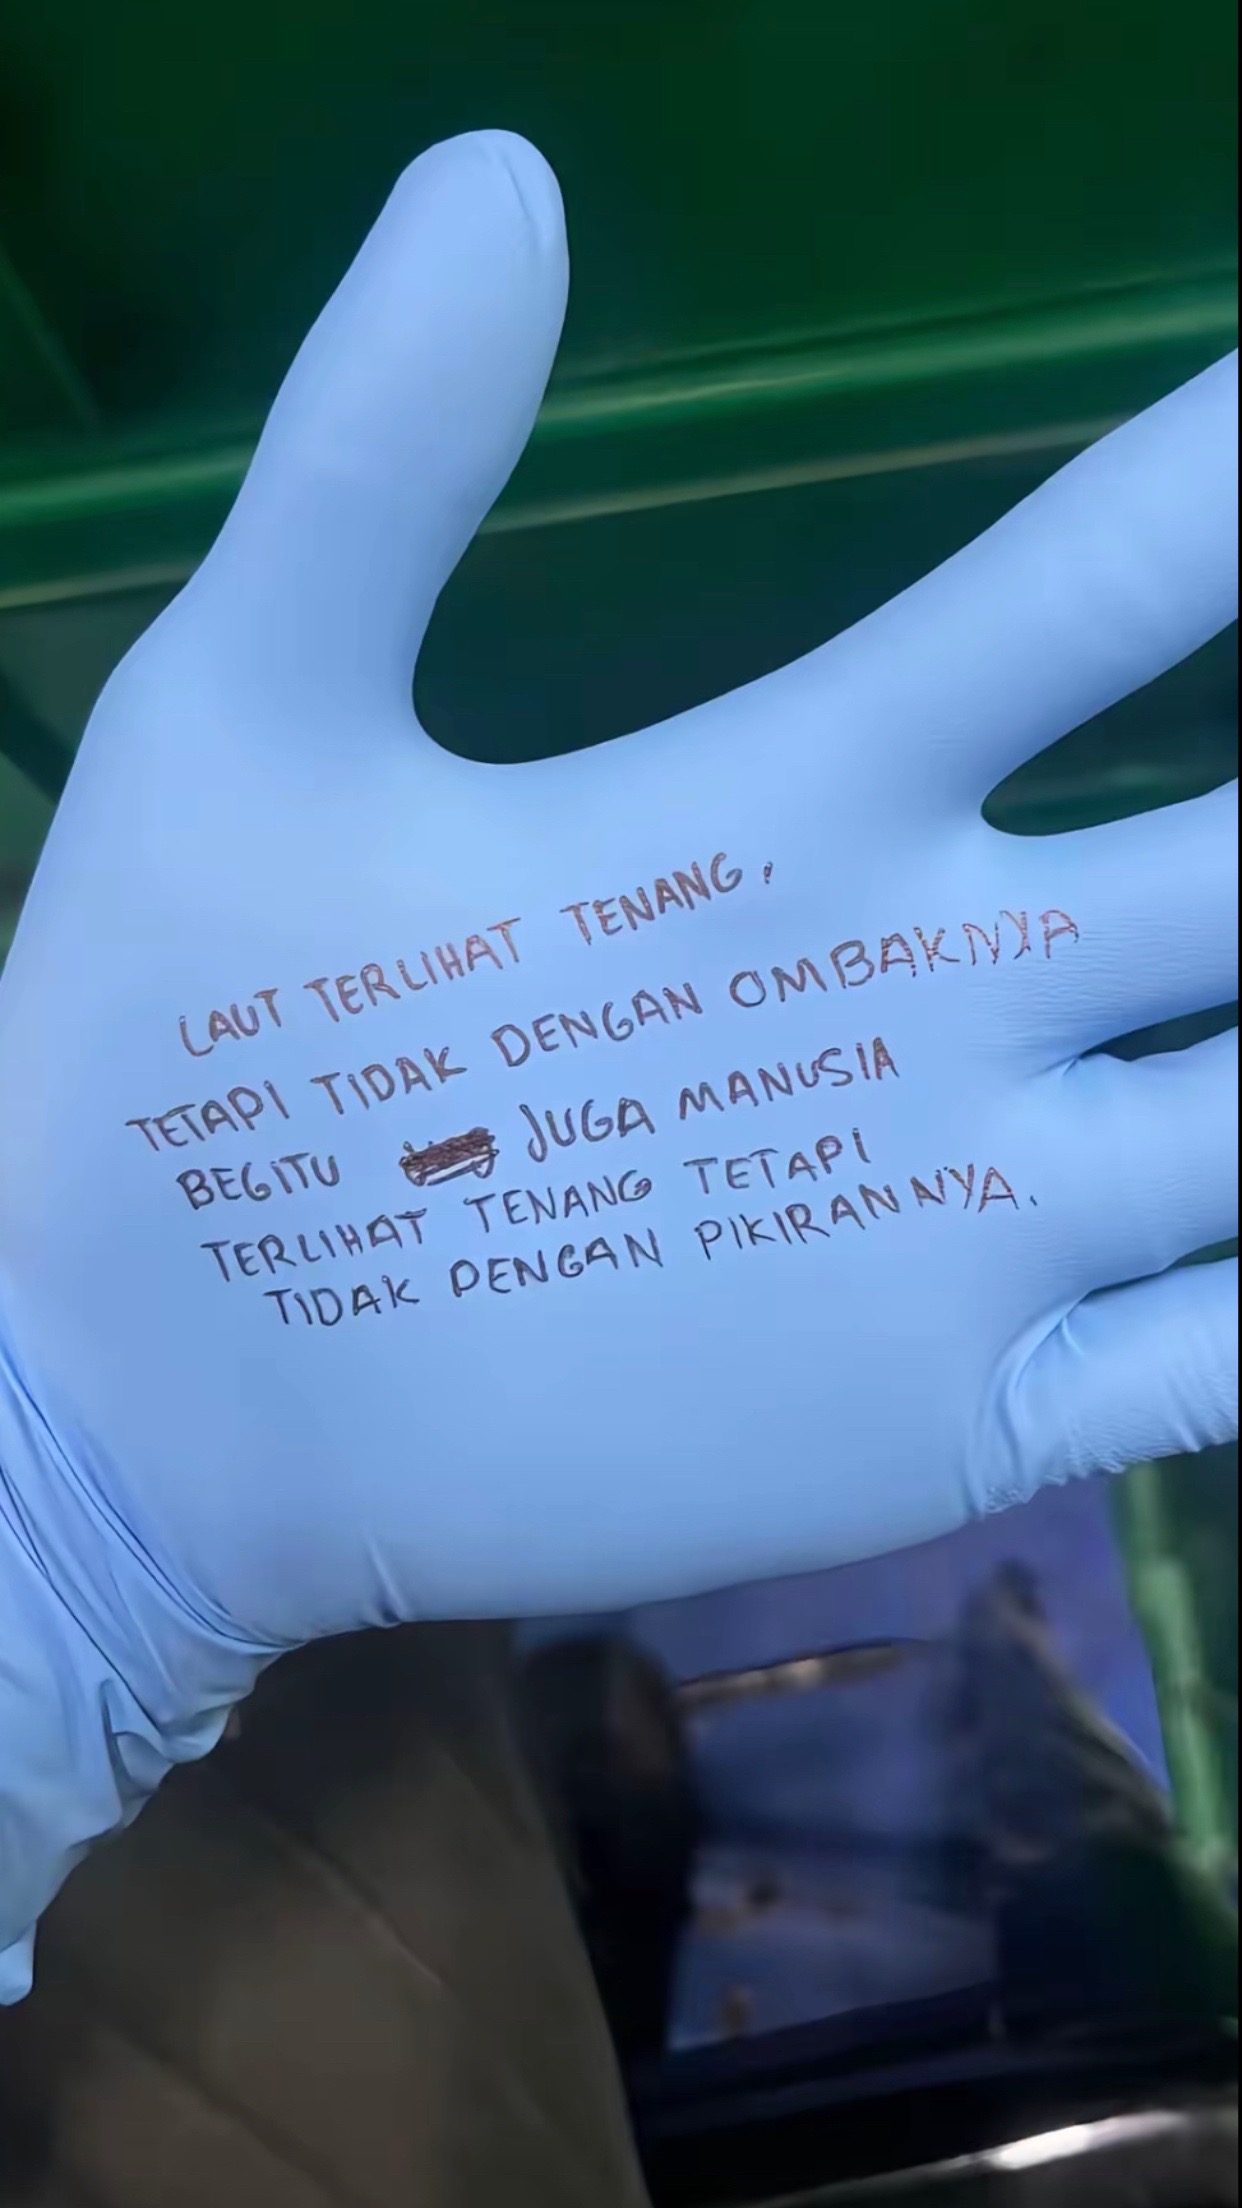 LAUT TERLIHAT TENANG,
TETAPI TIDAK DENGAN OMBAKNYA
BEGITU JUGA MANUSIA
TERLIHAT TENANG TETAPI
TIDAK DENGAN PIKIRANNYA.